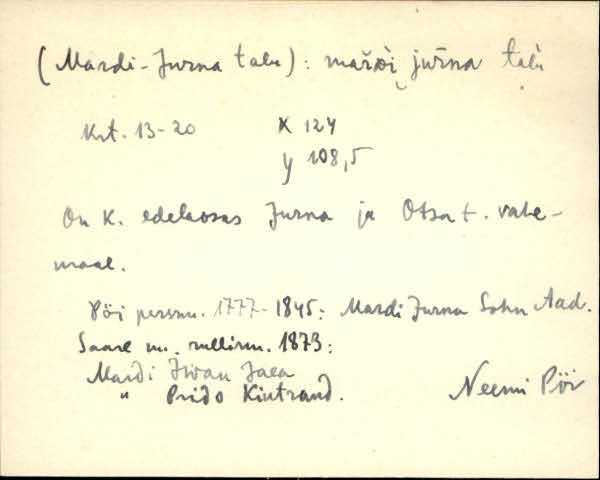 (Mardi-Jurna talu): maròi jūrna talù
Krt. 13-20 X 124
y 108,5
On K. edelaosas Jurna ja Otsa t. vahe-
maal.
Pöi persnr. 1777-1845: Mardi Jurna Sohn Aad.
Saare m. rullirnr. 1873:
Mardi Jiwan Jaea
" Prido Kintrand.
Neemi Pöi